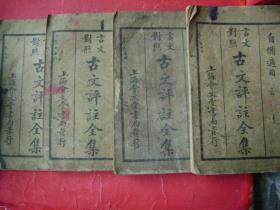 自修適用
言文
對照
古文評註全集
上海會文堂書局發行
言文
對照
古文評註全集
上海會文堂書局發行
言文
對照
古文評註全集
上海會文堂書局發行
言文
對照
古文評註全集